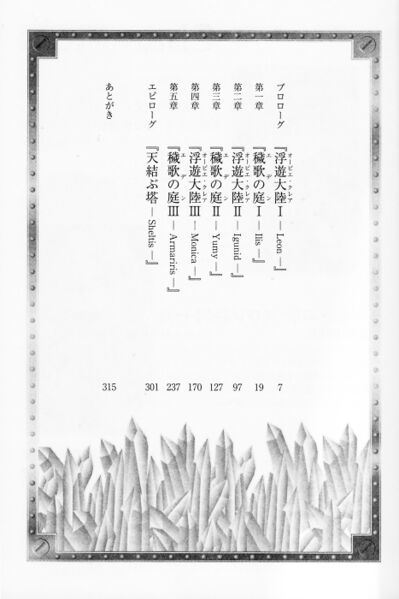 プロローグ 『浮遊大陸Ⅰ ― Leon ―』 7
第一章 『穢歌の庭Ⅰ ― Ilis ―』 19
第二章 『浮遊大陸Ⅱ ― Igunid ―』 97
第三章 『穢歌の庭Ⅱ ― Yumy ―』 127
第四章 『浮遊大陸Ⅲ ― Monica ―』 170
第五章 『穢歌の庭Ⅲ ― Armariris ―』 237
エピローグ 『天結ぶ塔 ― Sheltis ―』 301
あとがき 315